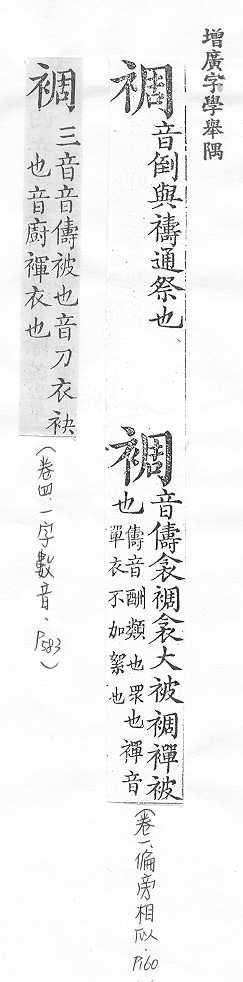 增廣字學舉隅
禂
音倒與禱通祭也
裯
音儔衾裯衾大被裯襌被
也
儔音酬類也眾也襌音
單衣不加絮也
(卷一、偏旁相似.P160
裯
三音音儔被也音刀衣袂
也音廚襌衣也
(卷四.一字數音.P583)